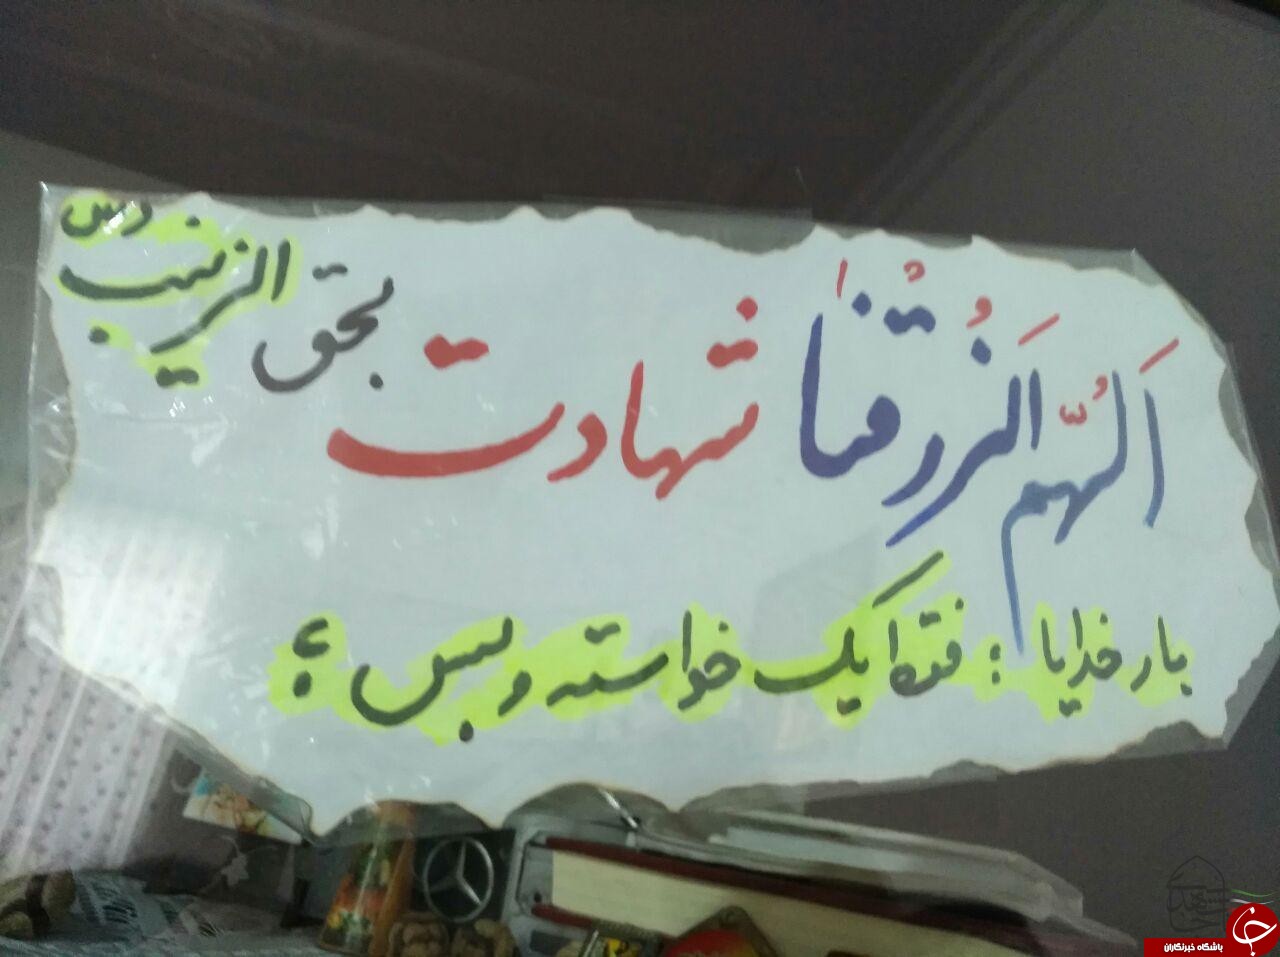 اَللّهُمَ الرزُقْنا شهادت بحق الزینب
بار خدایا : فقط یک خواسته و بس ؛
باشگاه خبرنگاران